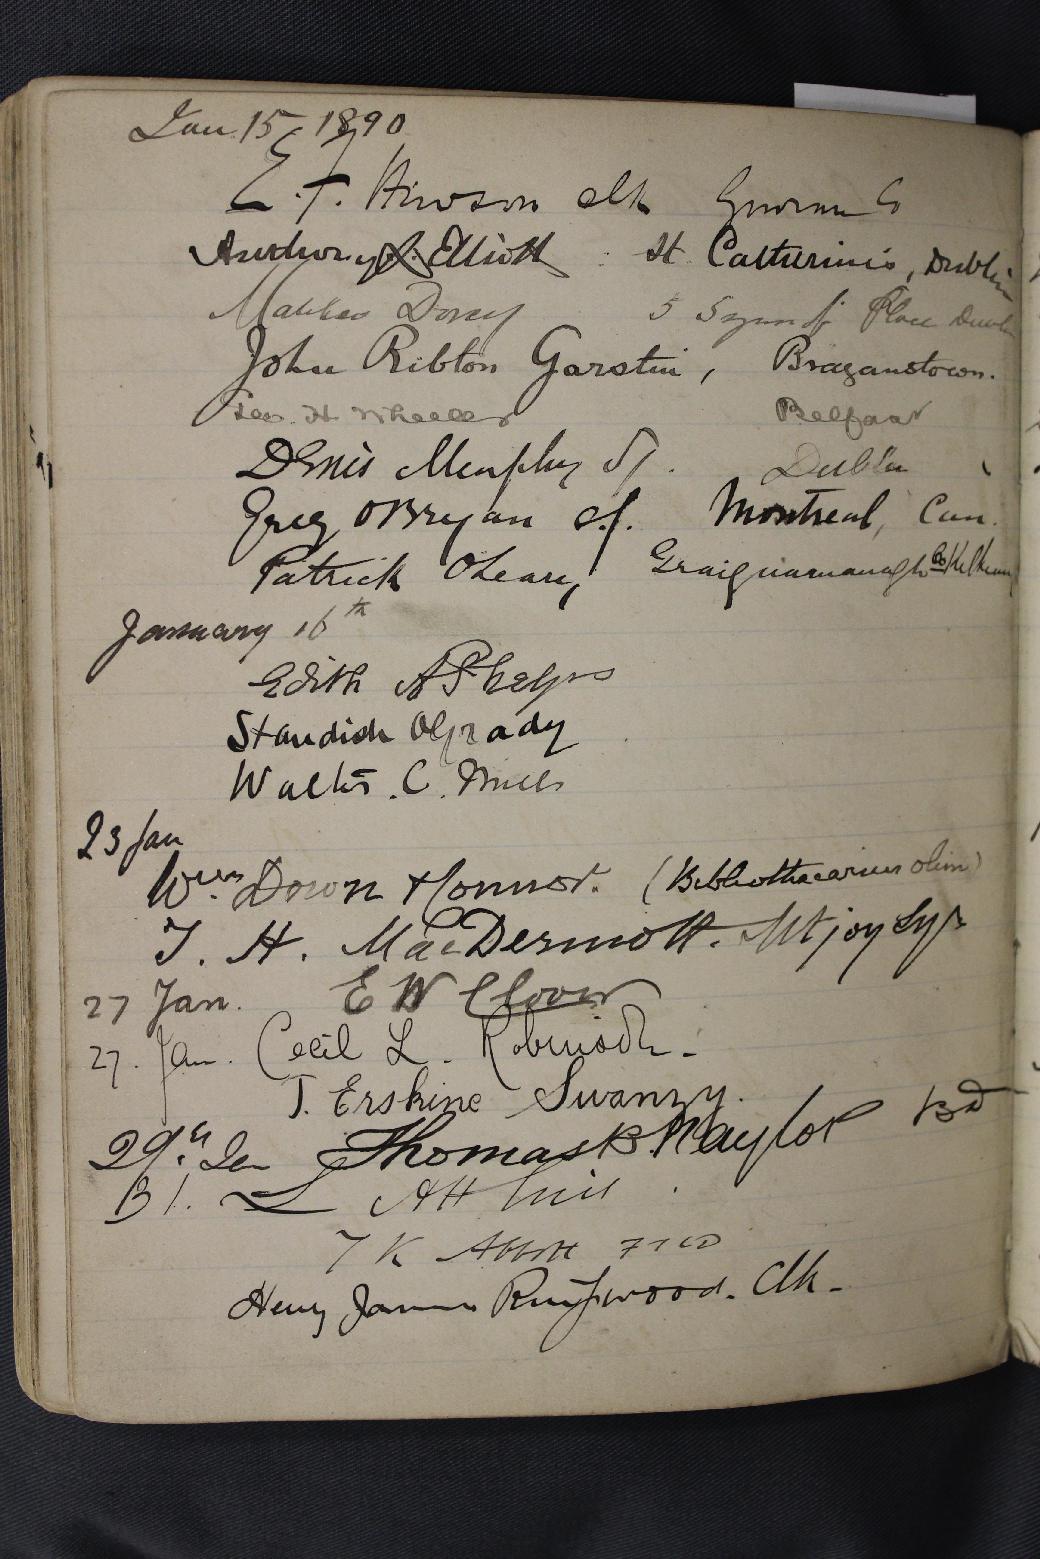 Jan. 15 1890
E. T. Hewson clk
Anthony L. Elliott St Catherine's, Dublin
Dorey 5 Place Dublin
John Ribton Garstin, Braganstown.
Geo. H. Wheeler Belfast
Denis Murphy SJ. Dublin
Greg OBryan s.j. Montreal, Can.
Patrick OLeary Graiguenamanagh Co Kilkenny
January 16th
Edith A Phelps
Standish OGrady
Walter. C. Mills
23 Jan
Wm. Down Honnor. (Bibliothecarius olim)
T. H. MacDermott. Mtjoy Sqr
27 Jan. E W Glover
27. Jan. Cecil L. Robinson.
T. Erskine Swanzy.
29th. Jan Thomas B. Naylor BD
31. L Atthill
T K Abbott FTCD
Henry James Ringwood. Clk.